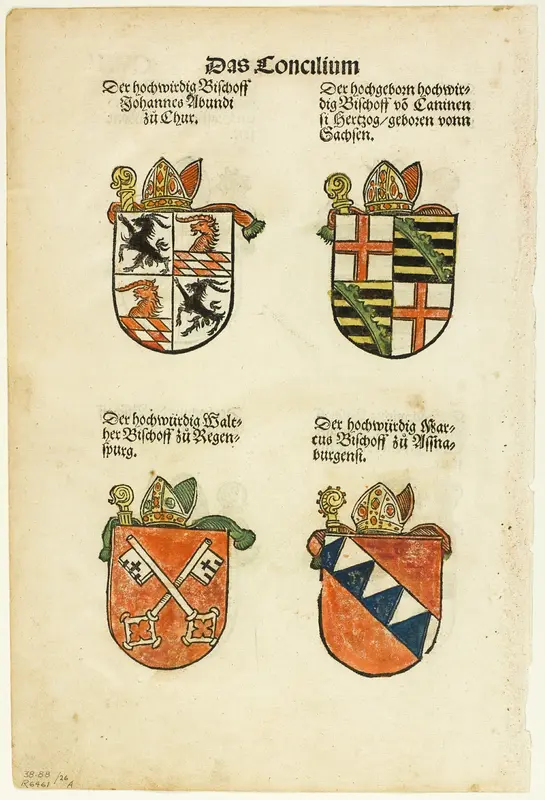 Das Concilium
Der hochwirdig Bischoff
Johannes Abundi
zů Chur.
Der hochgeborn hochwir⸗
dig Bischoff võ Caminen
si Hertzog/geboren vonn
Sachsen.
Der hochwürdig Walt⸗
her Bischoff zů Regen⸗
spurg.
Der hochwürdig Mar⸗
cus Bischoff zů Assna⸗
burgensi.
38.88 /26
R6461 A